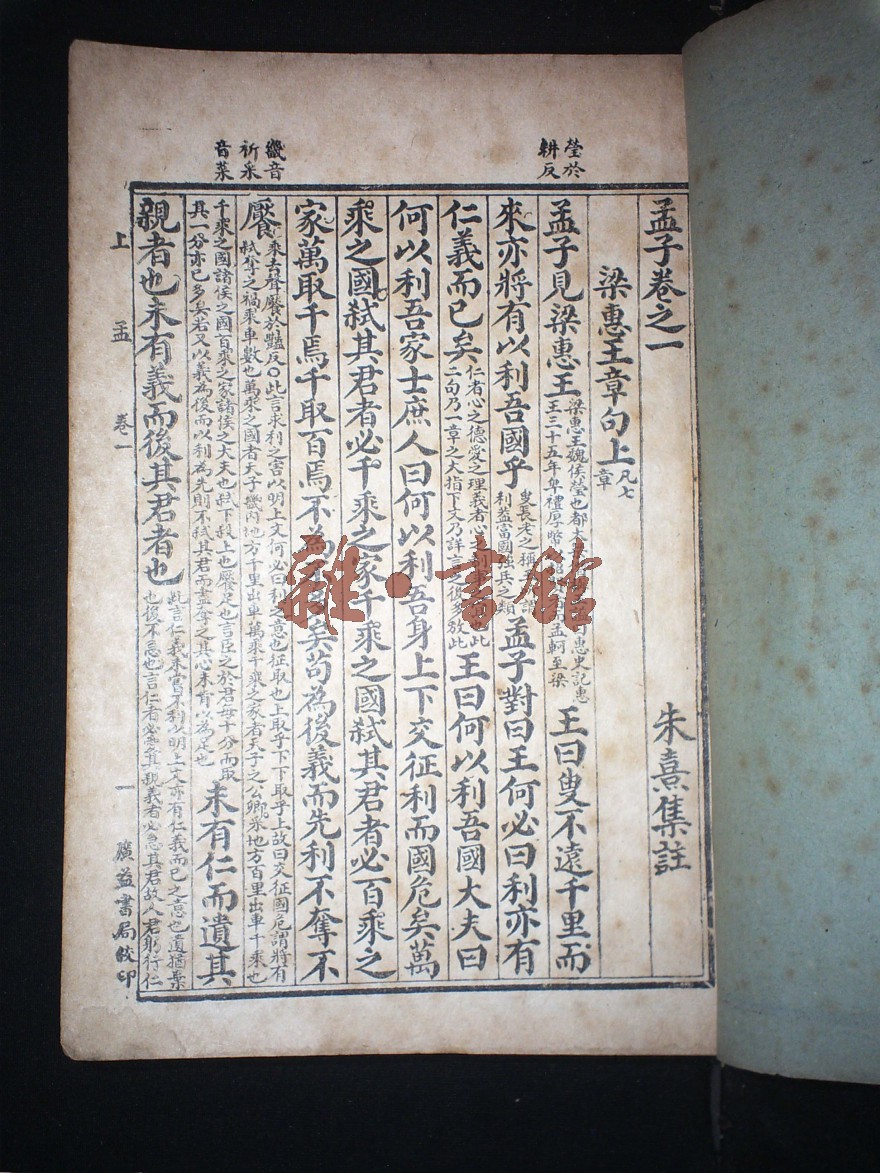 瑩於
耕反
畿音
祈采
音菜
孟子卷之一
朱熹集註
梁惠王章句上
凡七
章
孟子見梁惠王
梁惠王魏侯瑩也都大
惠史記惠
王三十五年卑禮厚幣
孟軻至梁
王曰叟不遠千里而
來亦將有以利吾國乎
叟長老之稱
利益富國強兵之類
孟子對曰王何必曰利亦有
仁義而已矣
仁者心之德愛之理義者心
此
二句乃一章之大指下文乃詳言之後多放此
王曰何以利吾國大夫曰
何以利吾家士庶人曰何以利吾身上下交征利而國危矣萬
乘之國弒其君者必千乘之家千乘之國弒其君者必百乘之
家萬取千焉千取百焉不為不多矣苟為後義而先利不奪不
饜
乘去聲饜於豔反○此言求利之害以明上文何必曰利之意也征取也上取乎下下取乎上故曰交征國危謂將有
弒奪之禍乘車數也萬乘之國者天子畿內地方千里出車萬乘千乘之家者天子之公卿采地方百里出車千乘也
千乘之國諸侯之國百乘之家諸侯之大夫也弒下殺上也饜足也言臣之於君每十分而取
其一分亦已多矣若又以義為後而以利為先則不弒其君而盡奪之其心未肯以為足也
未有仁而遺其
親者也未有義而後其君者也
此言仁義未嘗不利以明上文亦有仁義而已之意也遺猶棄
也後不急也言仁者必愛其親義者必急其君故人君躬行仁
上孟 卷一 一 廣益書局校印
雜·書館